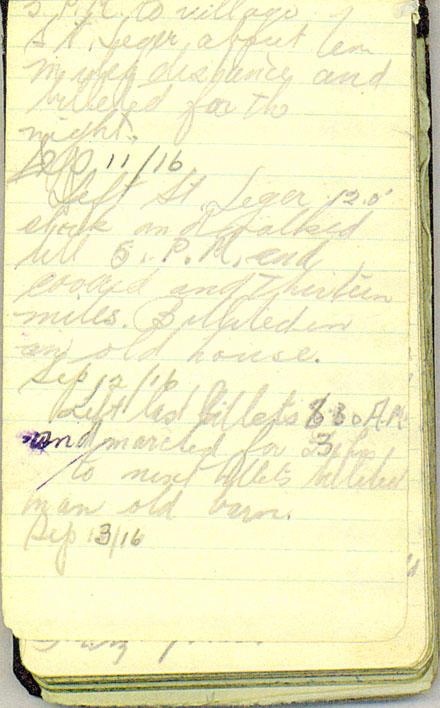 5 P.M. to village
St. Leger about ten
miles distance and
billeted for the
night.
Sep 11/16
Left St. Leger 12 o'
clock and walked
till 5. P.M. and
covered and thirteen
miles. Billeted in
an old house.
Sep 12/16
Left last billets 8 30 A.M.
and marched for 3
to next billets billeted
in an old barn.
Sep 13/16